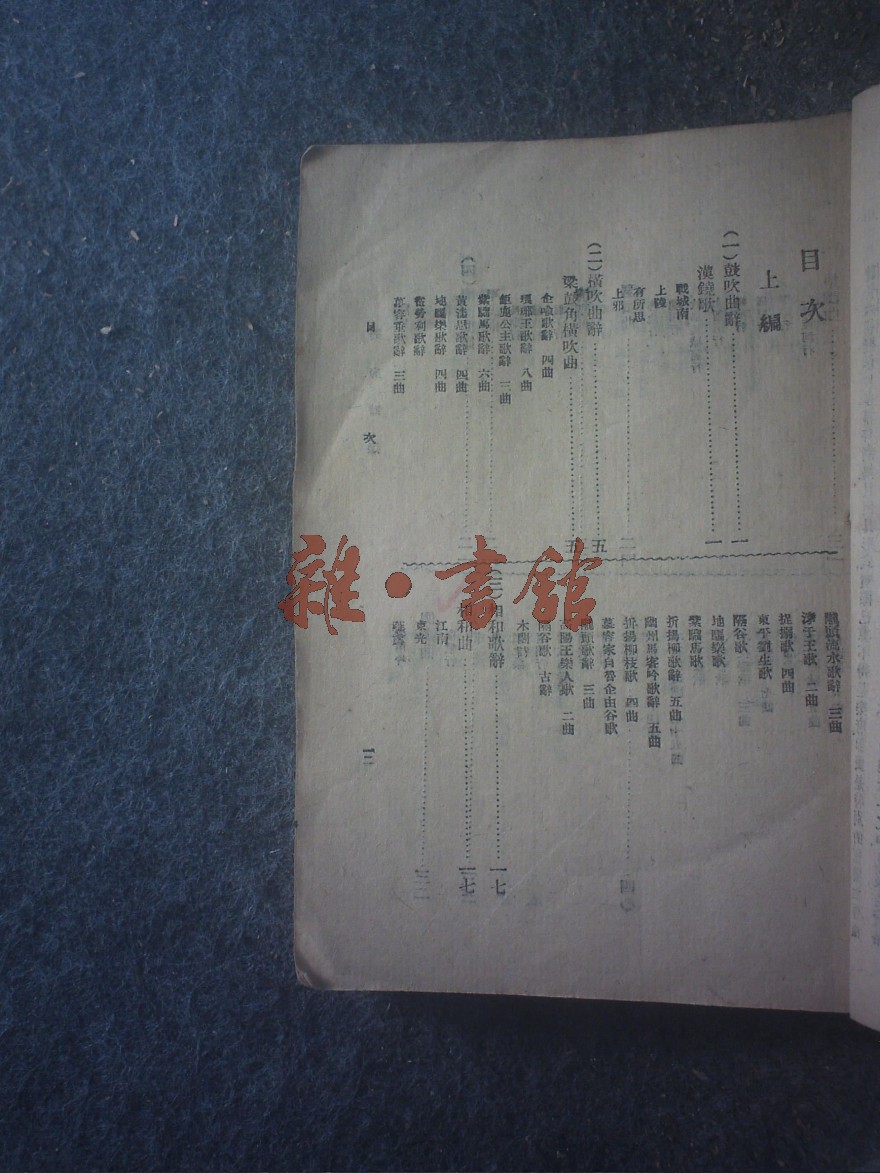 目次
上編
(一)鼓吹曲辭……一
漢鐃歌……一
戰城南
上陵
有所思
上邪
(二)橫吹曲辭……五
梁鼓角橫吹曲……五
企喩歌辭 四曲
瑯琊王歌辭 八曲
鉅鹿公主歌辭 三曲
紫騮馬歌辭 六曲
黃淡思歌辭 四曲
地驅樂歌辭 四曲
雀勞利歌辭
慕容垂歌辭 三曲
隴頭流水歌辭 三曲
淳于王歌 二曲
捉搦歌 四曲
東平劉生歌
隔谷歌
地驅樂歌
紫騮馬歌
折楊柳歌辭 五曲
幽州馬客吟歌辭 五曲
折楊柳枝歌 四曲
慕容家自魯企由谷歌
隴頭歌辭 三曲
高陽王樂人歌 二曲
隔谷歌 古辭
木蘭辭
(三)相和歌辭……一七
相和曲……一七
江南
東光
目次
一
雜·書館